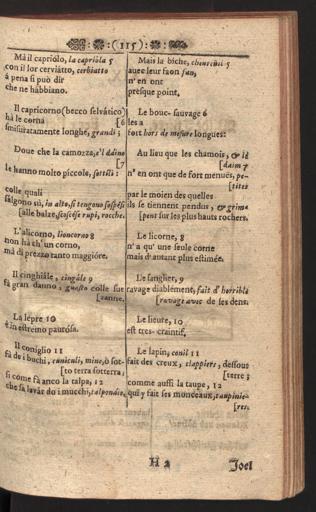 (115)
Mà il capriólo, la capriôla 5
con il lor cerviátto, cerbiatto
à pena si può dir
che ne hàbbiano.
Il capricorno (becco selvático)
hà le corna [6
smisuratamente longhe, grandi;
Doue che la camozza, e'l daino
[7
le hanno molto piccole, sottili:
colle quali
sálgono sù, in alto, si tengono sospési
[alle balze, scoscése rupi, rocche.
L'alicorno, lioncorno 8
non hà ch'un corno,
mà di prezzo tanto maggióre.
Il cinghiále, cingále 9
fà gran danno, guasto colle sue
[zanne.
La lépre 10
è in estreino paurósa.
Il coniglio 11
fà de i buchi, cuniculi, mine, ò sot-
[to terra sotterra;
si come fà anco la talpa, 12
che fà lavár do i mucchi, talponáie,
Mais la biche, cheureüil 5
avec leur faon fan,
n'en ont
presque point.
Le bouc-sauvage 6
les a
fort hors de mesure longues:
Au lieu que les chamois, & le
[daim 7
n'en ont que de fort menuës, pe-
[tites
par le moien des quelles
ils se tiennent pendus, & grim-
[pent sur les plus hauts rochers.
Le licorne, 8
n'a qu' une seule corne
mais d'autant plus estimée.
Le sanglier, 9
ravage diablément, fait d' horrible
[ravage avec de ses dens.
Le lieure, 10
est tres-craintif.
Le lapin, conil 11
fait des creux, clappiers, dessous
[terre;
comme aussi la taupe, 12
qui y fait ses monceaux, taupinie-
[res.
H 2
Joel